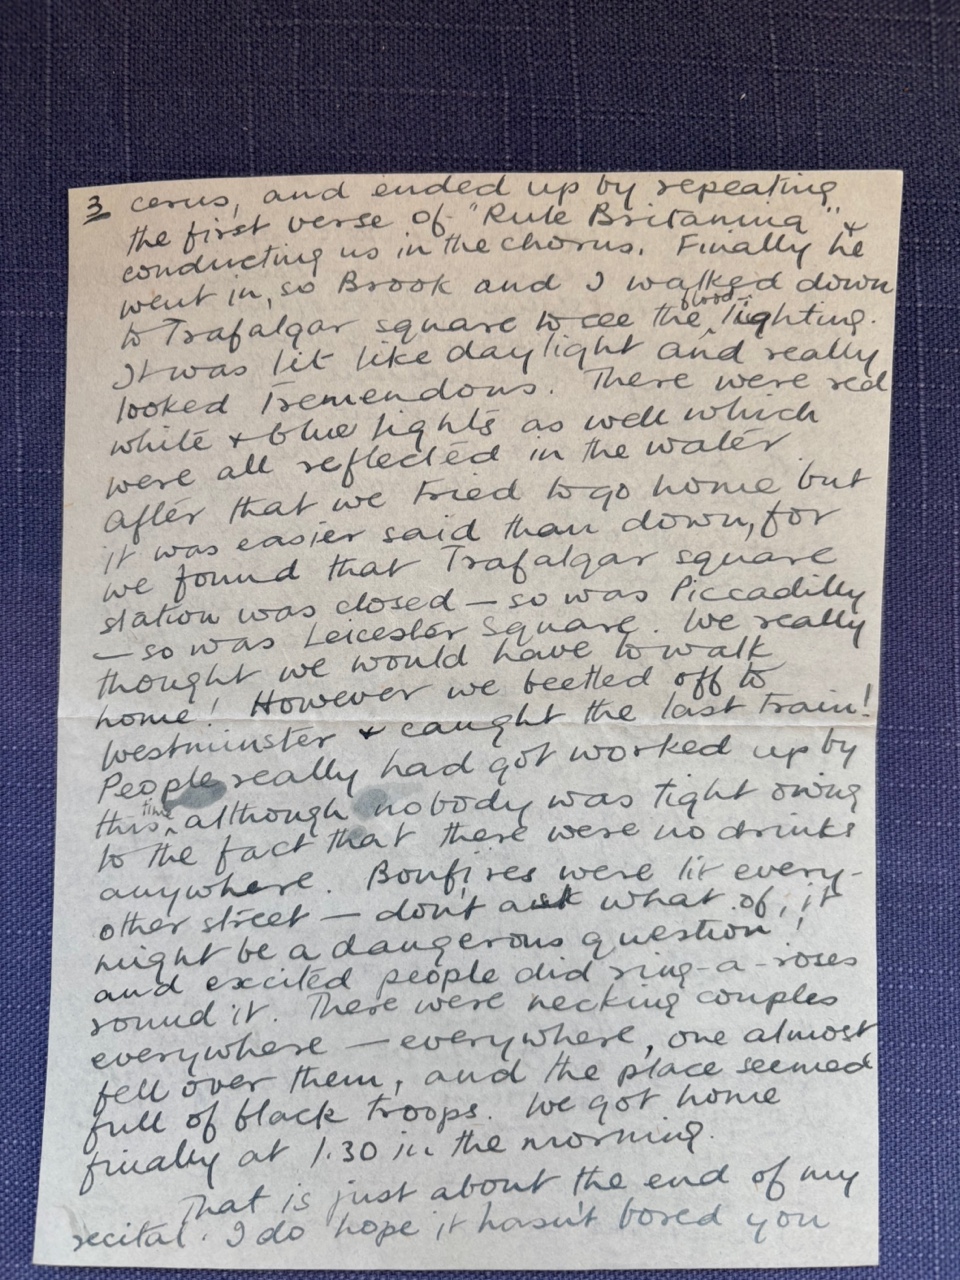 3 cerus, and ended up by repeating
the first verse of "Rule Britannia" &
conducting us in the chorus. Finally he
went in, so Brook and I walked down
to Trafalgar square to see the flood-lighting.
It was lit like daylight and really
looked tremendous. There were red
white & blue lights as well which
were all reflected in the water.
After that we tried to go home but
it was easier said than down, for
we found that Trafalgar square
station was closed — so was Piccadilly
— so was Leicester Square. We really
thought we would have to walk
home! However we beetled off to
Westminster & caught the last train!
People really had got worked up by
this time, although nobody was tight owing
to the fact that there were no drinks
anywhere. Bonfires were lit every-
other street — don't ask what of, it
might be a dangerous question!
and excited people did ring-a-roses
round it. There were necking couples
everywhere — everywhere, one almost
fell over them, and the place seemed
full of black troops. We got home
finally at 1.30 in the morning.
That is just about the end of my
recital. I do hope it hasn't bored you